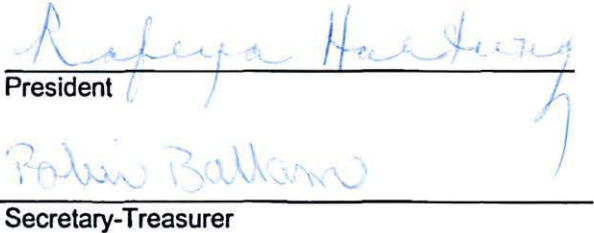 Rafeya Hartung
President
Robin Ballam
Secretary-Treasurer